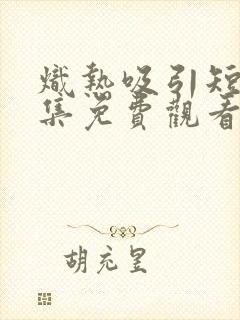 熾熱吸引短
集免費觀看
胡充呈